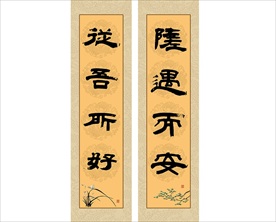 隨遇而安
從吾所好